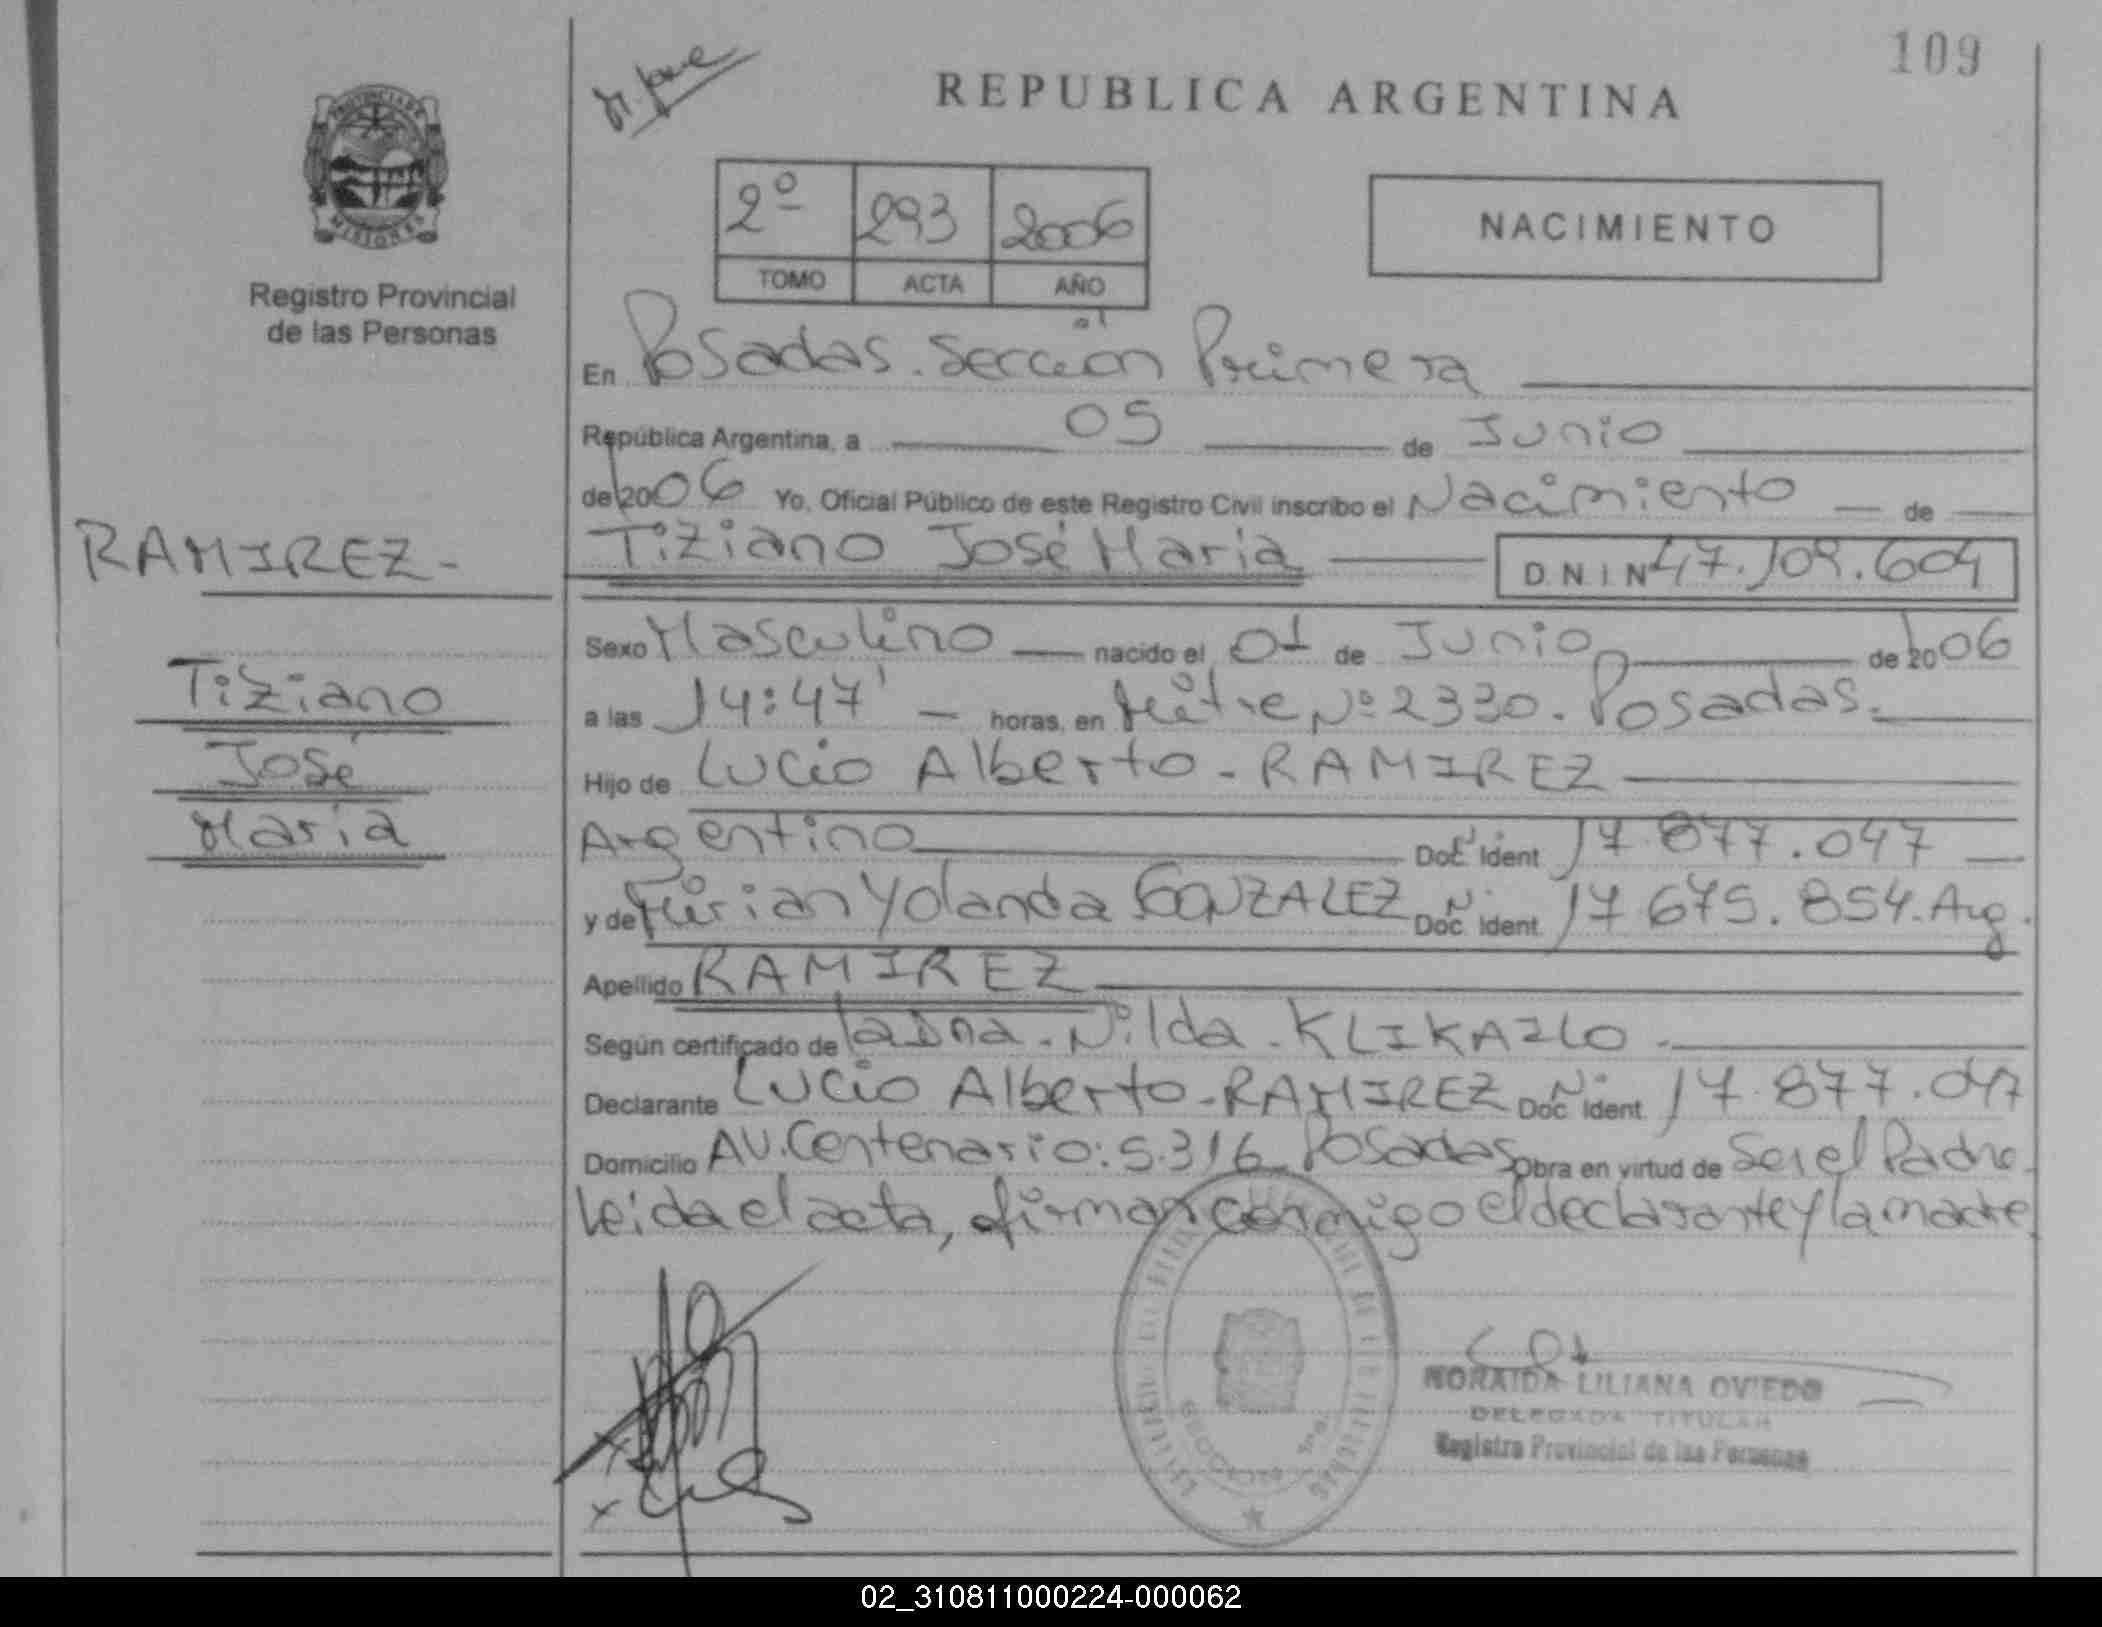 109
REPUBLICA ARGENTINA
PROVINCIA DE
MISIONES
Registro Provincial
de las Personas
2º 293 2006
TOMO ACTA AÑO
NACIMIENTO
En Posadas. Sección Primera
República Argentina, a 05 de Junio
de 2006 Yo, Oficial Público de este Registro Civil inscribo el Nacimiento de
RAMIREZ-
Tiziano José Maria DNI N 47.109.604
Sexo Masculino nacido el 01 de Junio de 2006
Tiziano
José
Maria
a las 14:47' horas, en Mitre Nº 2330. Posadas.
Hijo de Lucio Alberto - RAMIREZ
Argentino Doc. Ident 17.877.047
y de Mirian Yolanda GONZALEZ Doc. Ident. 17.675.854. Arg.
Apellido RAMIREZ
Según certificado de la Dna. Nilda. KLIKAILO.
Declarante Lucio Alberto - RAMIREZ Doc. Ident 17.877.047
Domicilio AV. Centenario: 5.316 Posadas Obra en virtud de Ser el Padre.
Leida el acta, firman conmigo el declarante y la madre.
NORAIDA LILIANA OVIEDO
DELEGADA TITULAR
Registro Provincial de las Personas
02_310811000224-000062